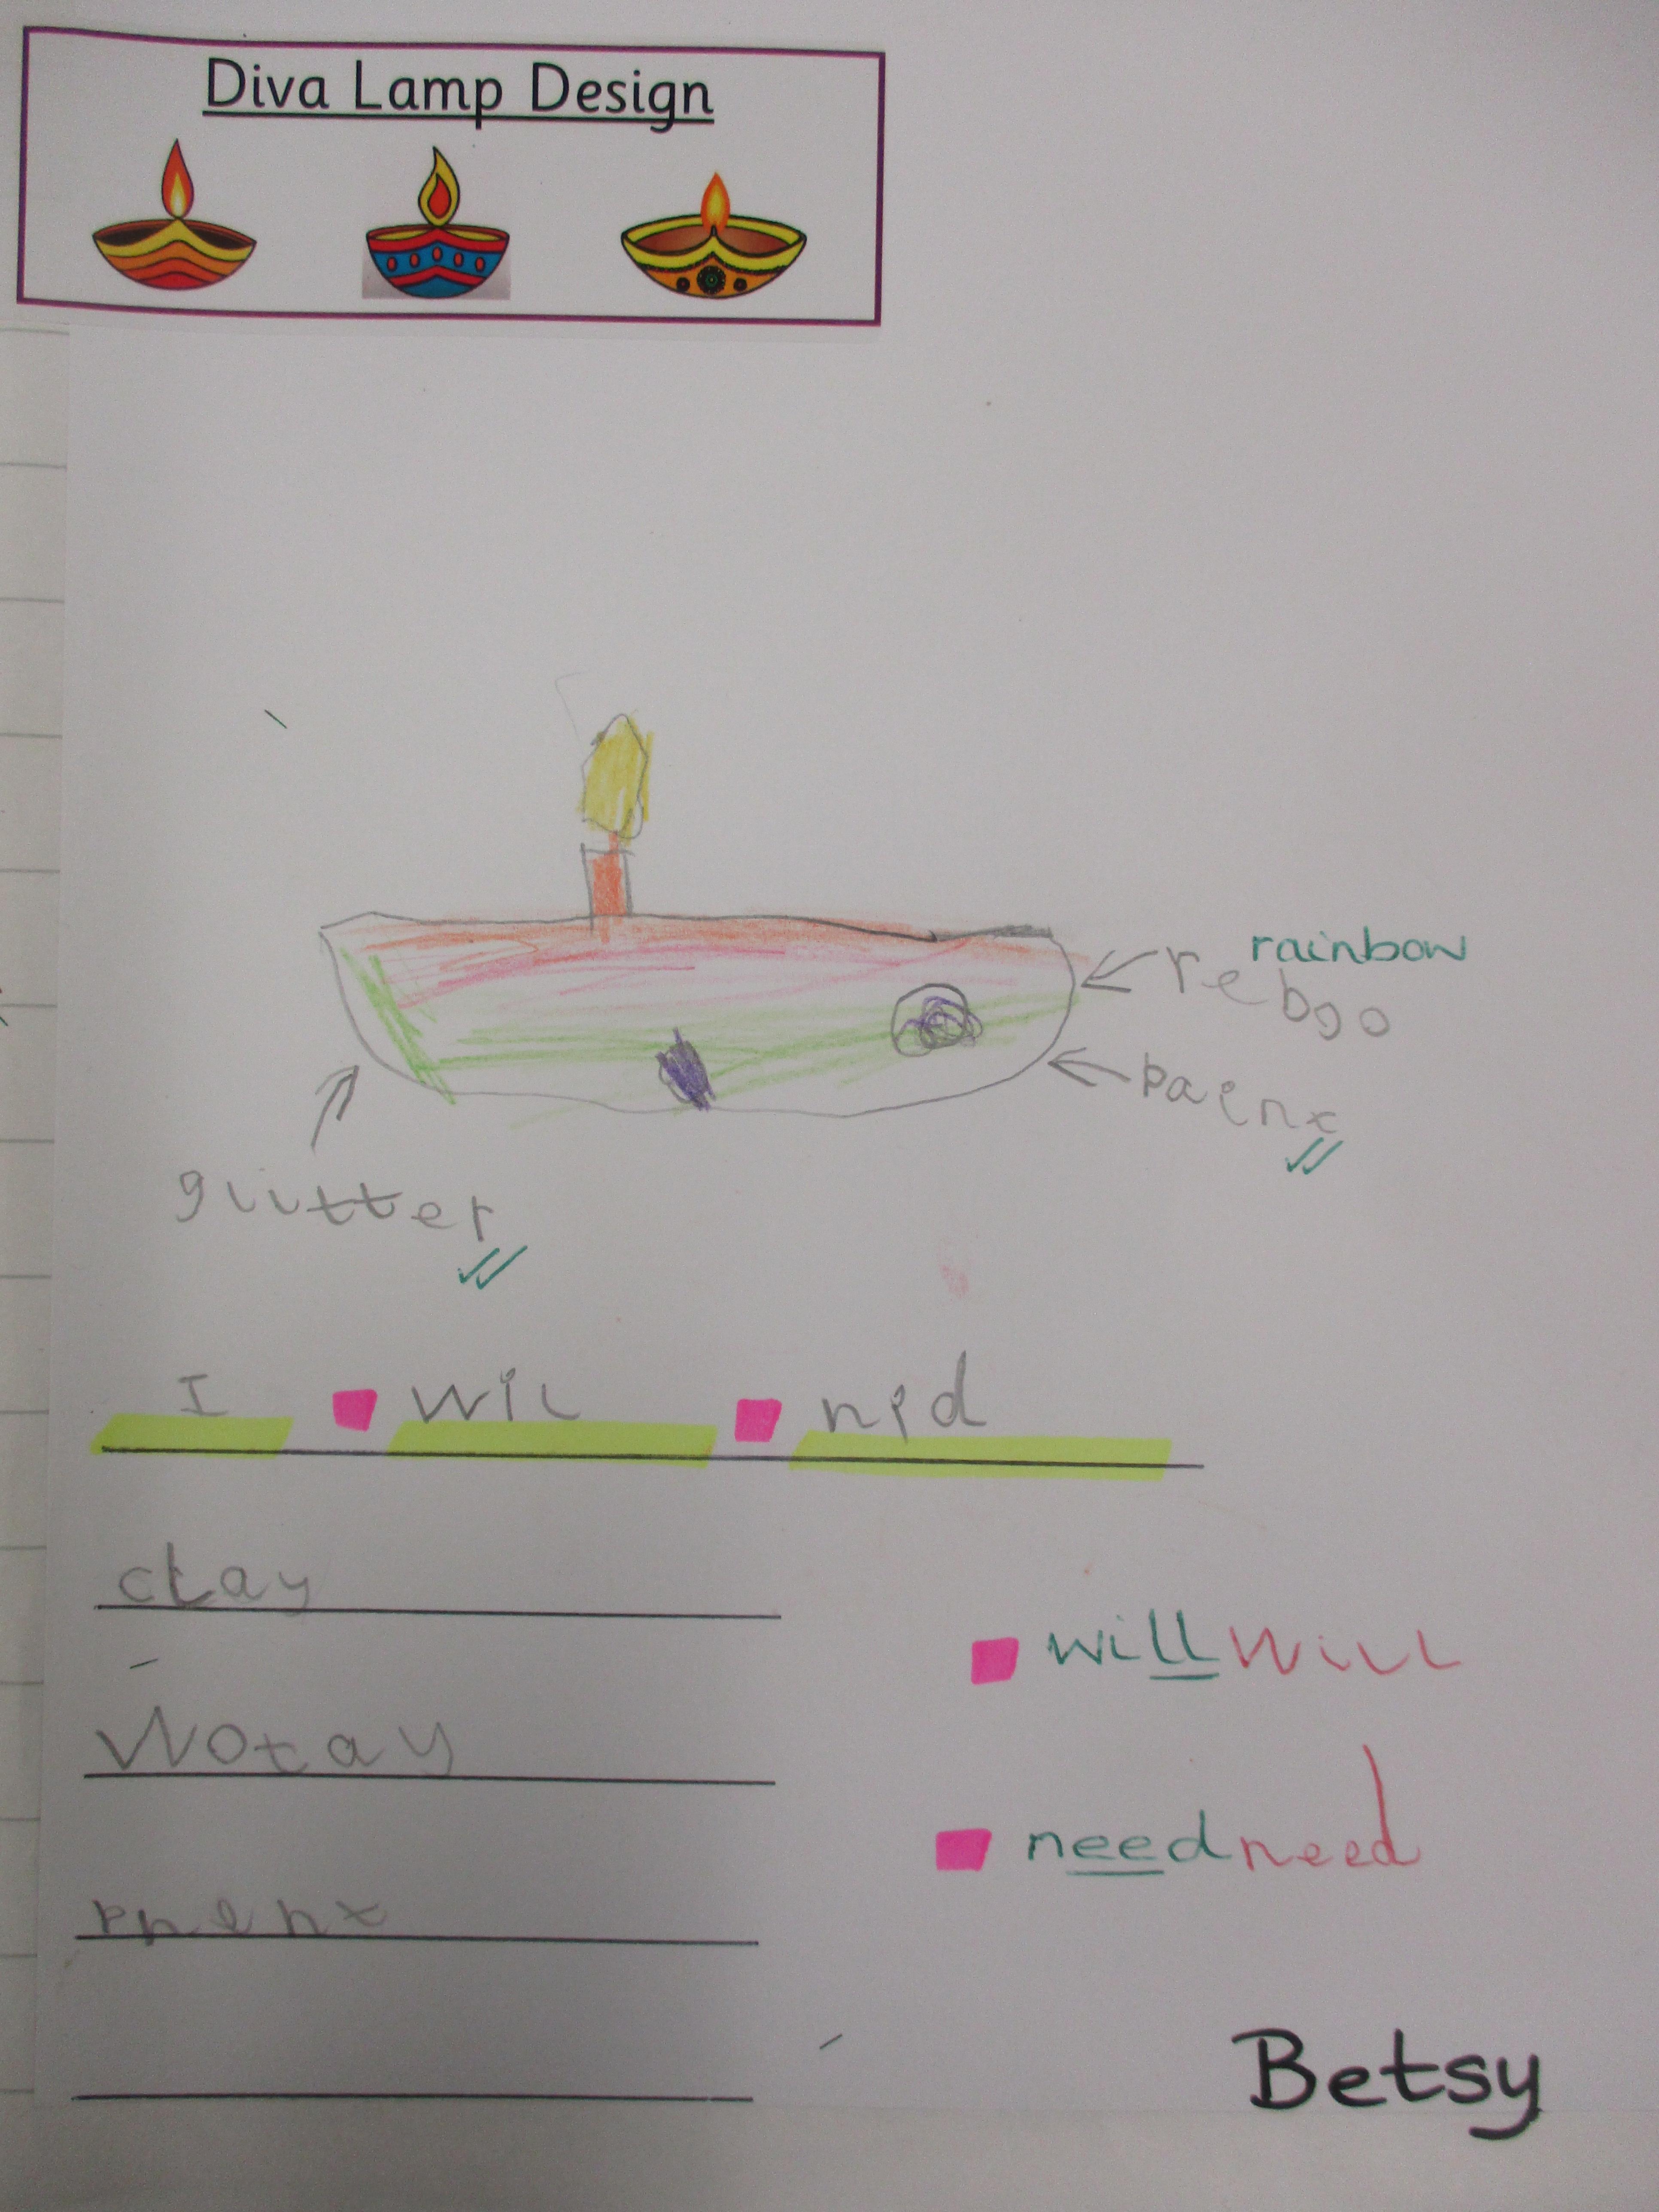 Diva Lamp Design
rainbow
rebgo
paint
glitter
I wil nid
clay
will will
Wotay
need need
Betsy